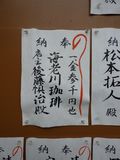 奉納
一金参千円也
海老川珈琲
店主 後藤慎治殿
奉納
松本拓人殿